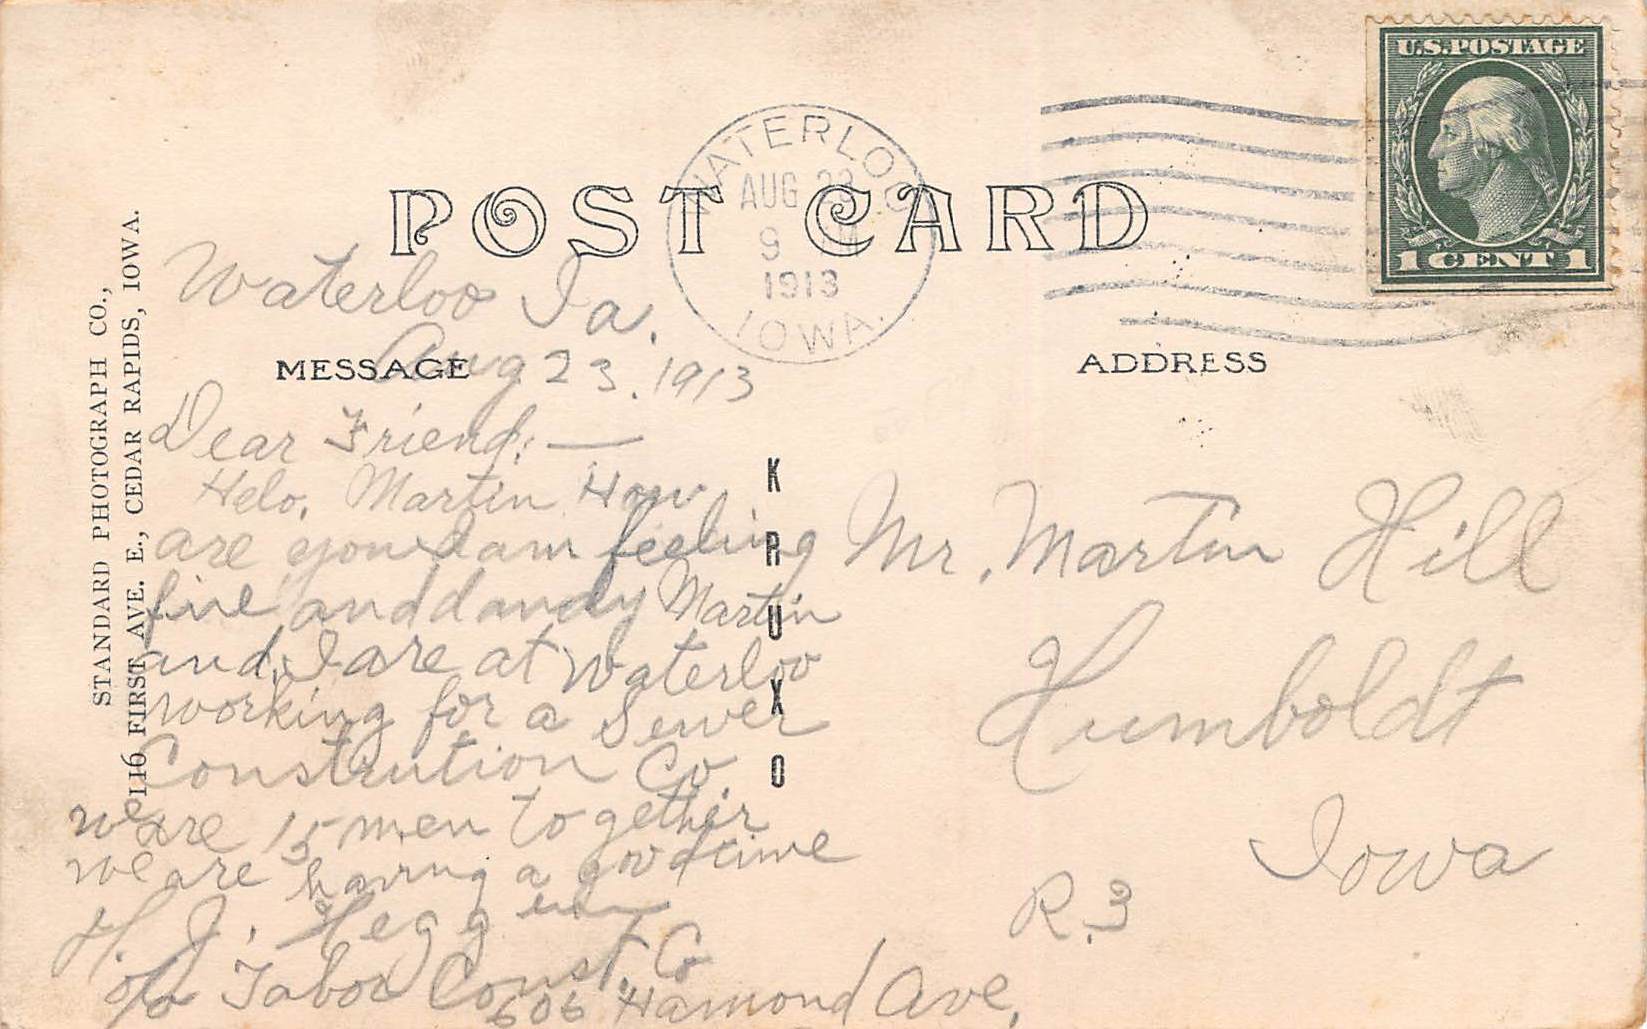 U.S. POSTAGE
1 CENT 1
WATERLOO
AUG 23
9 M
1913
IOWA.
POST CARD
MESSAGE
ADDRESS
STANDARD PHOTOGRAPH CO.,
1116 FIRST AVE. E., CEDAR RAPIDS, IOWA.
KRUXO
Waterloo Ia.
Aug 23. 1913
Dear Friend: —
Helo, Martin How
are you I am feeling
fine and dandy Martin
and I are at Waterloo
working for a Sewer
Constrution Co.
we are 15 men together
we are having a good time
H. J.
c/o Tabor Const. Co
606 Hamond Ave,
Mr. Martin Hill
Humboldt
Iowa
R. 3